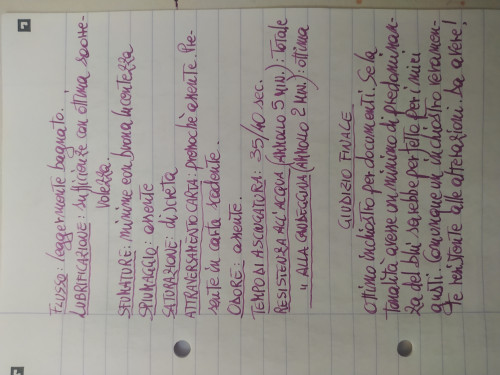 FLUSSO: leggermente bagnato.
LUBRIFICAZIONE: sufficiente con ottima scorre-
volezza.
SFUMATURE: minime con buona lucentezza
SPIUMAGGIO: assente
SATURAZIONE: discreta
ATTRAVERSAMENTO CARTA: pressoché assente. Pre-
sente in carta scadente.
ODORE: assente.
TEMPO DI ASCIUGATURA: 35/40 sec.
RESISTENZA ALL'ACQUA (AMMOLLO 5 MIN.): totale
" ALLA CANDEGGINA (AMMOLLO 2 MIN.): ottima
GIUDIZIO FINALE
Ottimo inchiostro per documenti. Se la
tonalità avesse un minimo di predominan-
za del blu sarebbe perfetto per i miei
gusti. Comunque un inchiostro veramen-
te resistente alle alterazioni. Da avere!